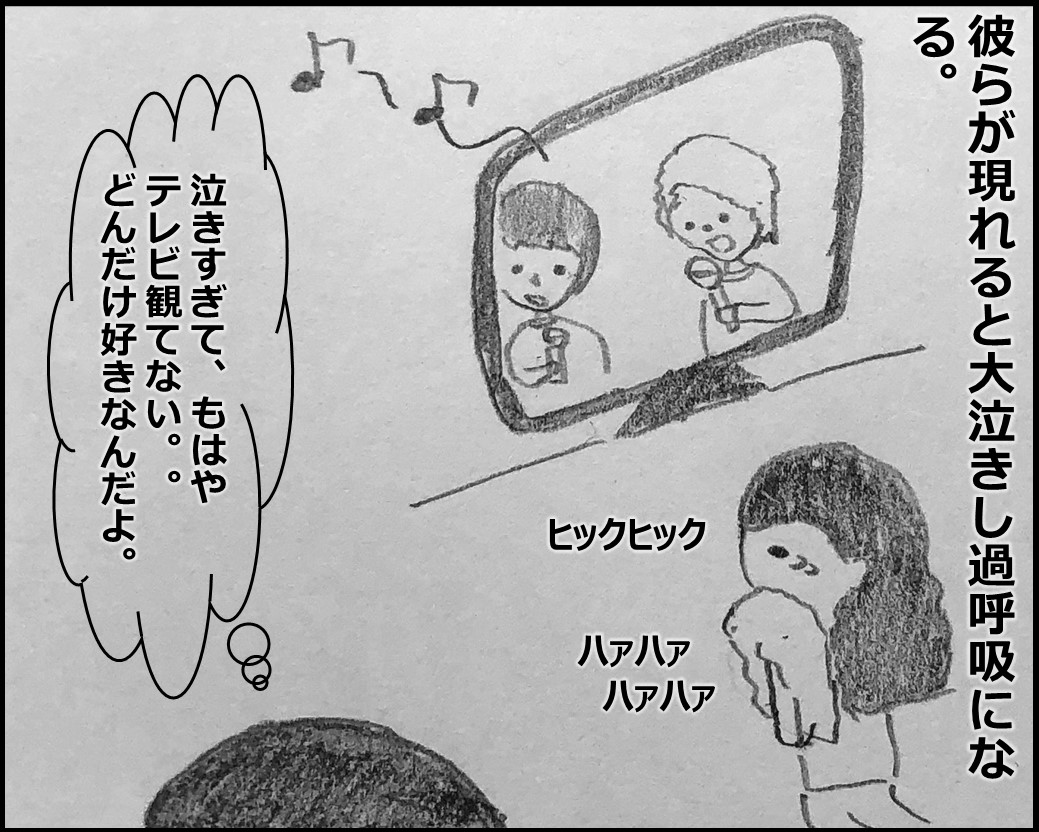 彼らが現れると大泣きし過呼吸にな
る。
ヒックヒック
ハァハァ
ハァハァ
泣きすぎて、もはや
テレビ観てない。。
どんだけ好きなんだよ。